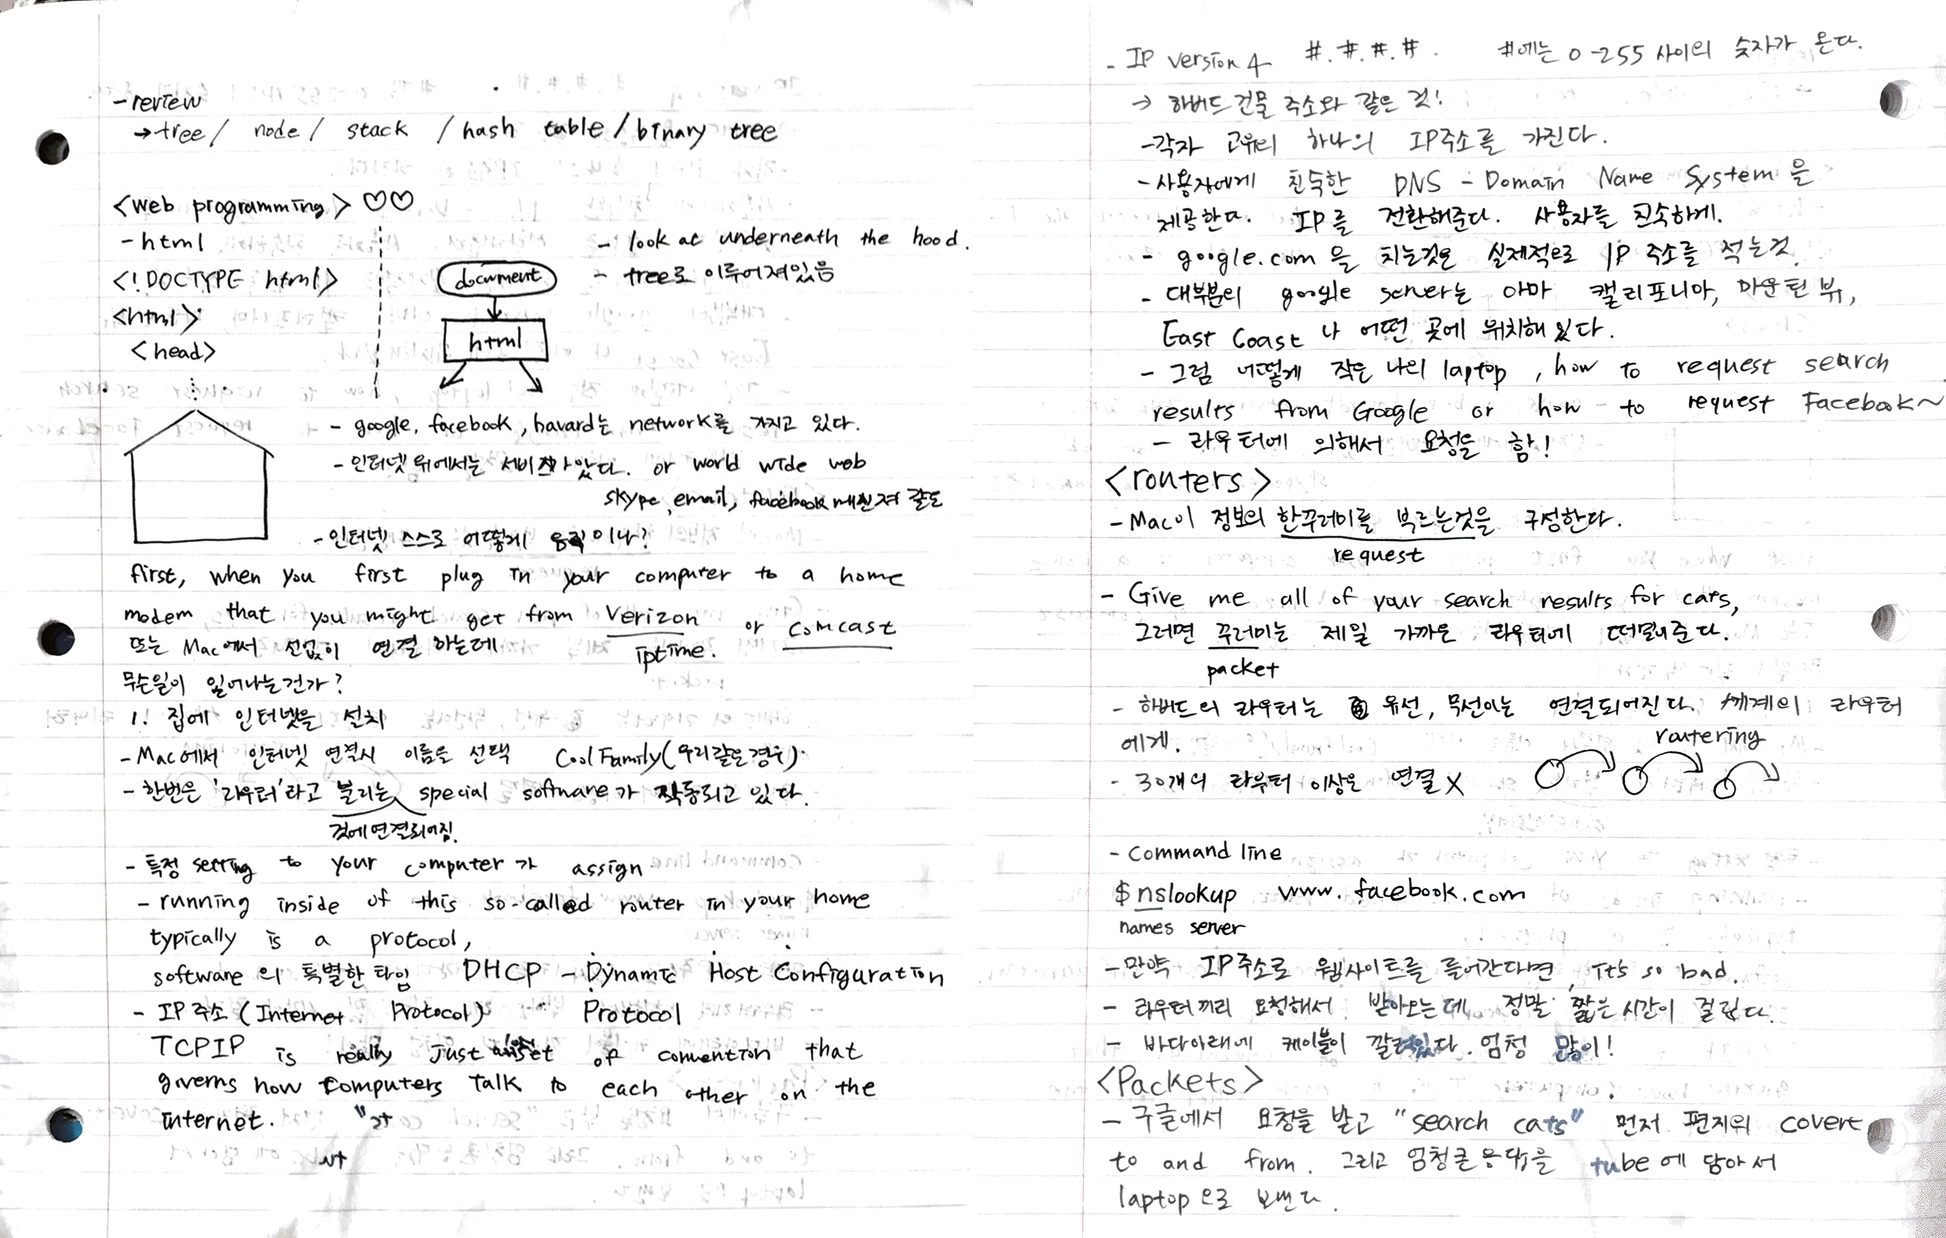 -review
→tree/ node/ stack /hash table/binary tree
<web programming> ♡♡
-html
<!DOCTYPE html>
<html>
<head>
- look at underneath the hood.
- tree로 이루어져있음
document
html
- google, facebook, havard는 network를 가지고 있다.
-인터넷위에서는 서비스 or world wide web
skype, email, facebook 메신져 같은
-인터넷 스스로 어떻게 움직이나?
first, when you first plug in your computer to a home
modem that you might get from Verizon or Comcast
iptime.
또는 Mac에서 선없이 연결 하는데
무슨일이 일어나는건가?
1. 집에 인터넷을 설치
-Mac에서 인터넷 연결시 이름을 선택 CoolFamily(우리같은경우)
-한번은 '라우터'라고 불리는 special software가 작동되고 있다.
것에연결되어짐.
-특정 setting to your computer가 assign
- running inside of this so-called router in your home
typically is a protocol,
software의 특별한 타입 DHCP - Dynamic Host Configuration
Protocol
- IP주소(Internet Protocol)
TCPIP is really just set of convention that
giverns how computers talk to each other on the
internet.
- IP version 4 #.#.#.#. #에는 0-255 사이의 숫자가 온다.
→ 하버드건물 주소와 같은 것!
-각자 고유의 하나의 IP주소를 가진다.
-사용자에게 친숙한 DNS - Domain Name System을
제공한다. IP를 전환해준다. 사용자를 친숙하게.
- google.com을 치는것은 실제적으로 IP 주소를 적는것.
- 대부분의 google server는 아마 캘리포니아, 마운틴뷰,
East Coast 나 어떤 곳에 위치해있다.
- 그럼 어떻게 작은 나의 laptop, how to request search
results from Google or how to request Facebook~
- 라우터에 의해서 요청을 함!
<routers>
-Mac이 정보의 한꾸러미를 부르는것을 구성한다.
request
- Give me all of your search results for cats,
그러면 꾸러미는 제일 가까운 라우터에 떠밀어준다.
packet
- 하버드의 라우터는 유선, 무선이는 연결되어진다. 세계의 라우터
에게.
routering
- 30개의 라우터 이상은 연결 X
- Command line
$ nslookup www.facebook.com
names server
-만약 IP주소로 웹사이트를 들어간다면, it's so bad.
- 라우터끼리 요청해서 받아오는데, 정말 짧은시간이 걸린다.
- 바다아래에 케이블이 깔려있다. 엄청 많이!
<Packets>
- 구글에서 요청을 받고 "search cats" 먼저 편지의 covert
to and from. 그리고 엄청큰 응답을 tube에 담아서
laptop으로 보낸다.